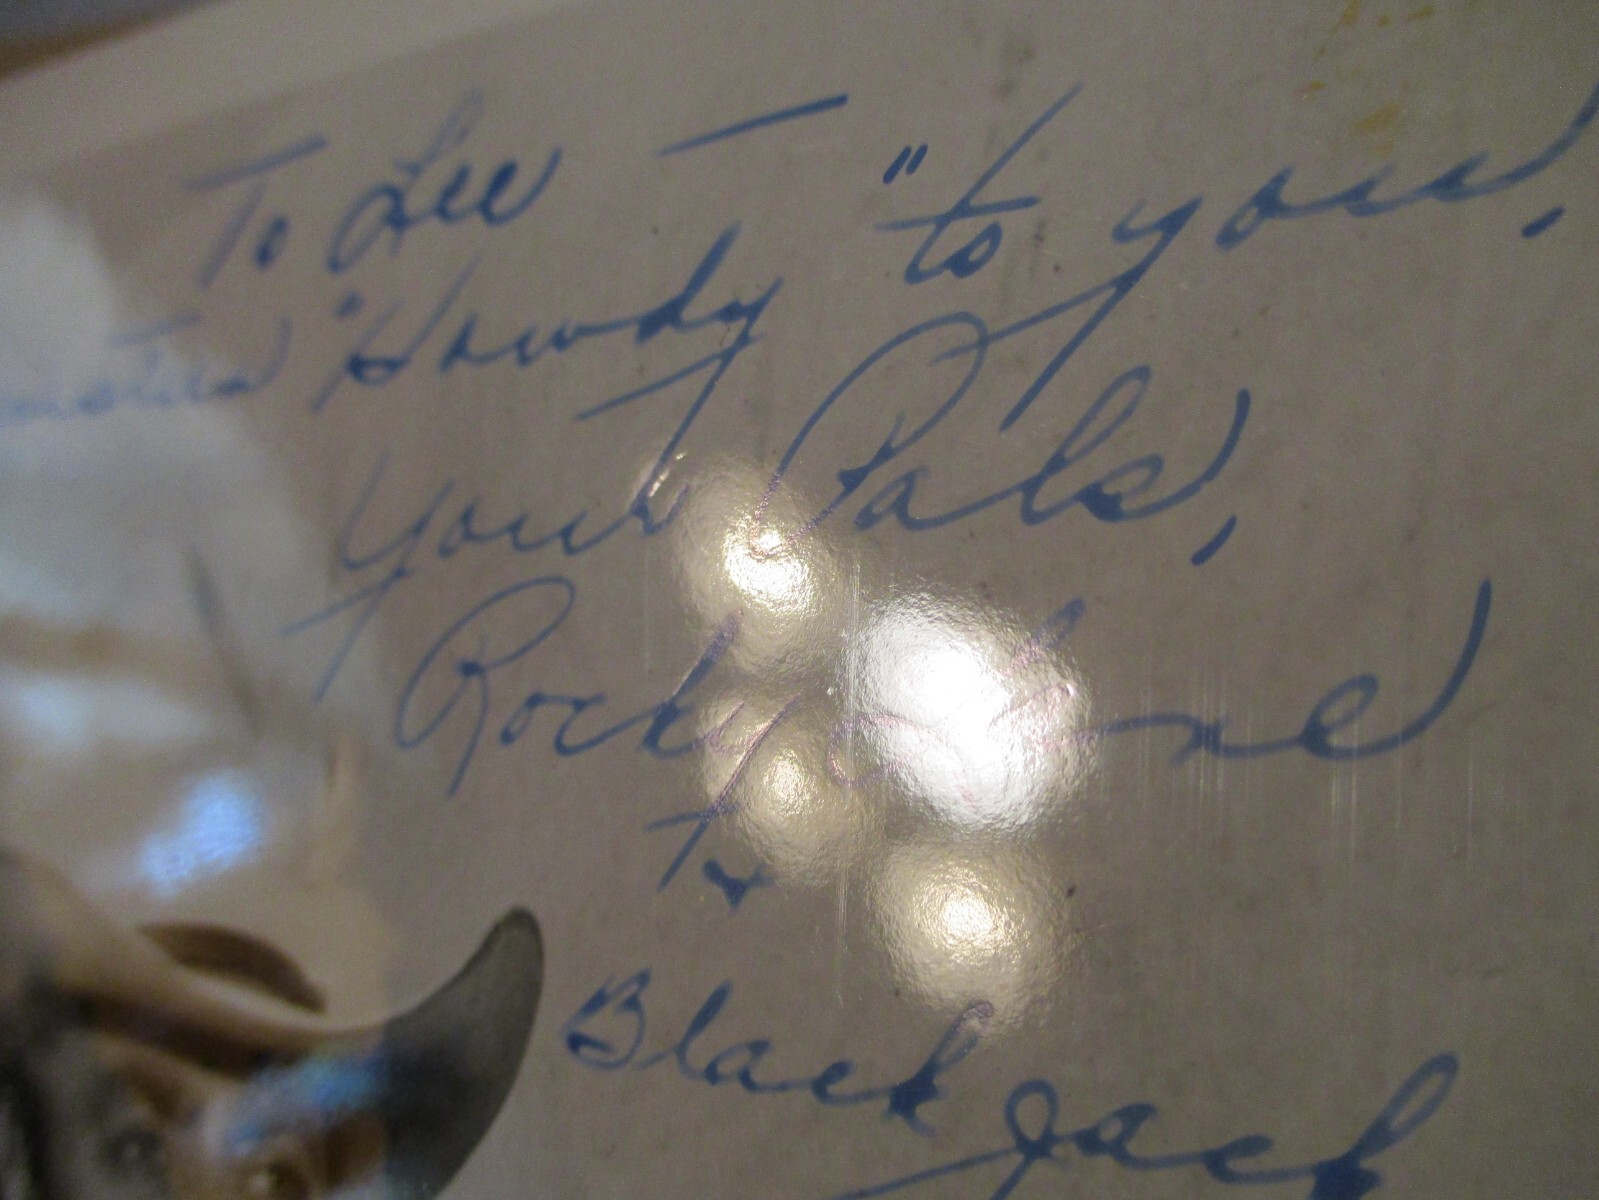 To Lee —
"Howdy" to you,
Your Pals,
Rocky Lane
+
Black Jack